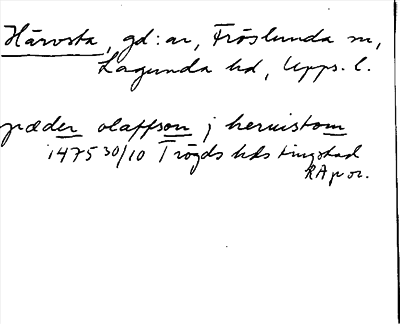 Härvsta, gd:ar, Fröslunda sn,
Lagunda hd, Upps. l.
pæder olaffson j heruistom
1475 30/10 Trögds hds tingstad
RAp or.